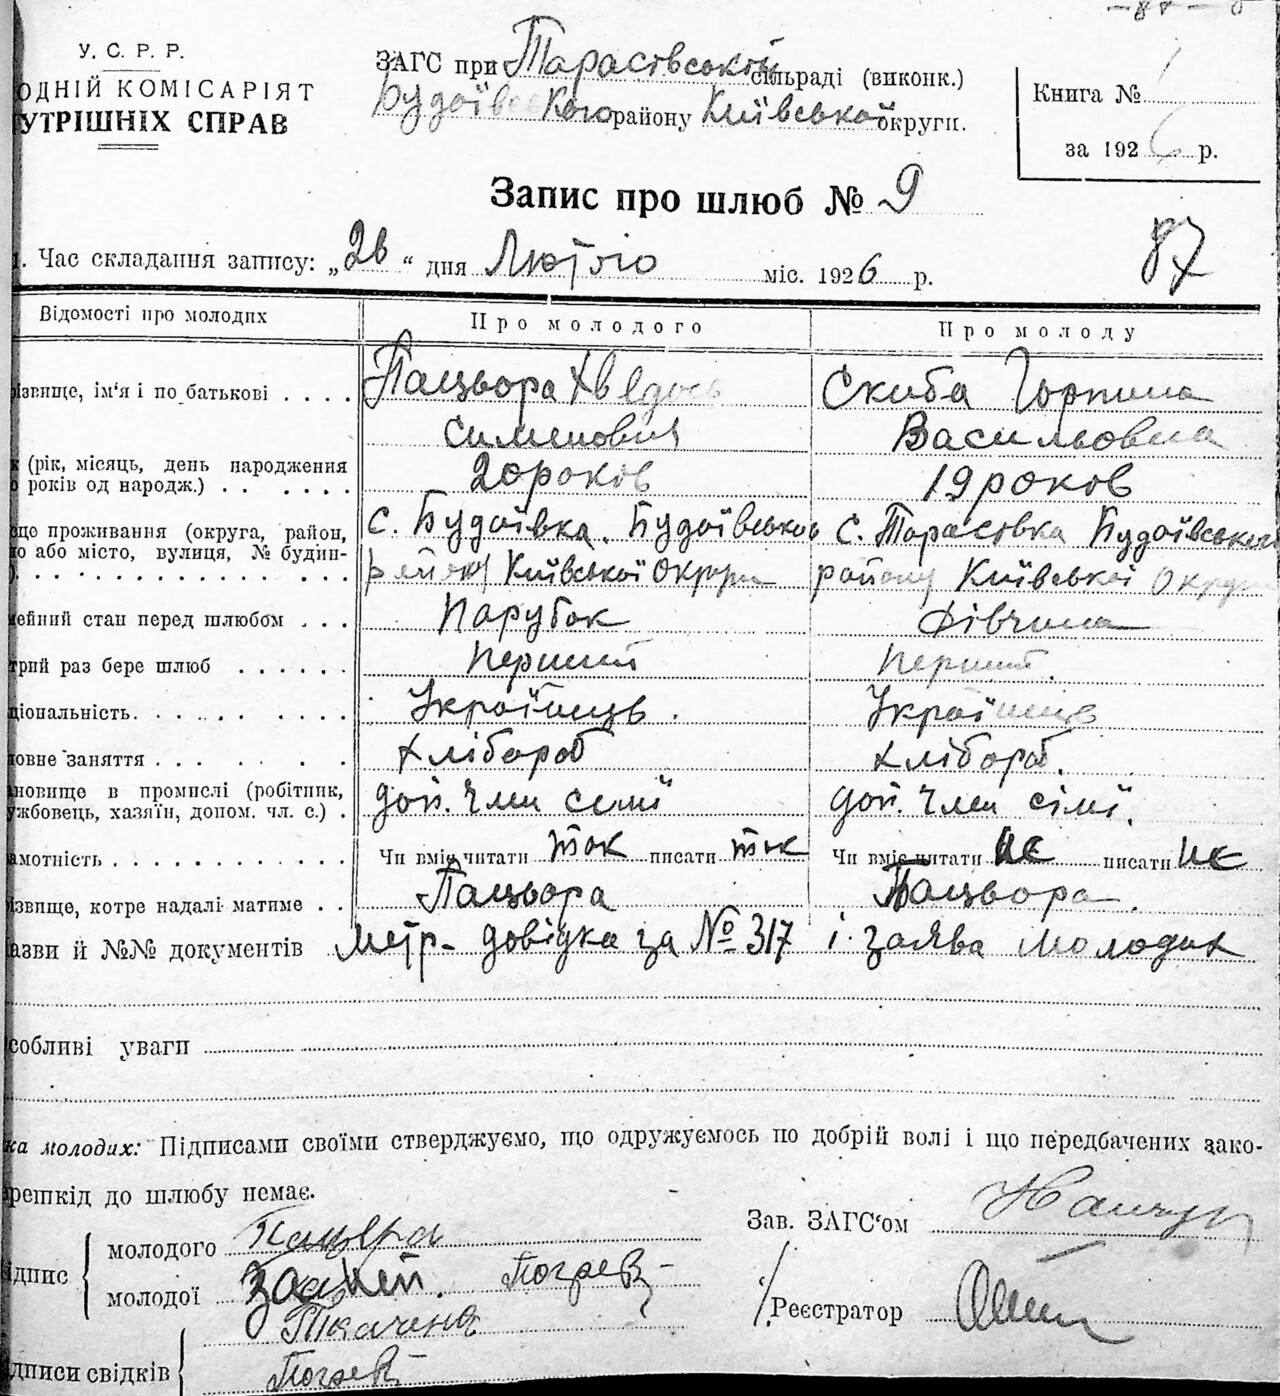 У. С. Р. Р.
ОДНІЙ КОМІСАРІЯТ
УТРІШНІХ СПРАВ
ЗАГС при Тарасівській сільраді (виконк.)
Будаївського району Київської округи.
Книга №
за 1926 р.
Запис про шлюб № 9
87
1. Час складання запису: „26“ дня Лютого міс. 1926 р.
Відомості про молодих Про молодого Про молоду
різвище, ім‘я і по батькові . . . . Пацьора Хведось Скиба Горпина
Сименович Васильовна
к (рік, місяць, день народження
о років од народж.) . . . . . . 20 років 19 років
сце проживання (округа, район, с. Будаївка. Будаївсько с. Тарасівка Будаївського
ло або місто, вулиця, № будин-
району Київської Округи району Київської Округи
мейний стан перед шлюбом . . . Парубок Дівчина
трий раз бере шлюб . . . . . . Перший Перший.
ціональність. . . . . . . . . . Українець. Українець
ловне заняття . . . . . . . Хлібороб Хлібороб.
ановище в промислі (робітник,
ужбовець, хазяїн, допом. чл. с.) . доп. член семї доп. член сімї.
амотність . . . . . . . . . . . Чи вміє читати так писати так Чи вміє читати не писати не
ізвище, котре надалі матиме . . Пацьора Пацьора.
азви й №№ документів метр- довідка за № 317 і заява молодих
собливі уваги
ка молодих: Підписами своїми стверджуємо, що одружуємось по добрій волі і що передбачених зако-
ерешкід до шлюбу немає.
Зав. ЗАГС‘ом
молодого Пацера
ідпис
молодої За неї.
Реєстратор
Ткаченко
дписи свідків